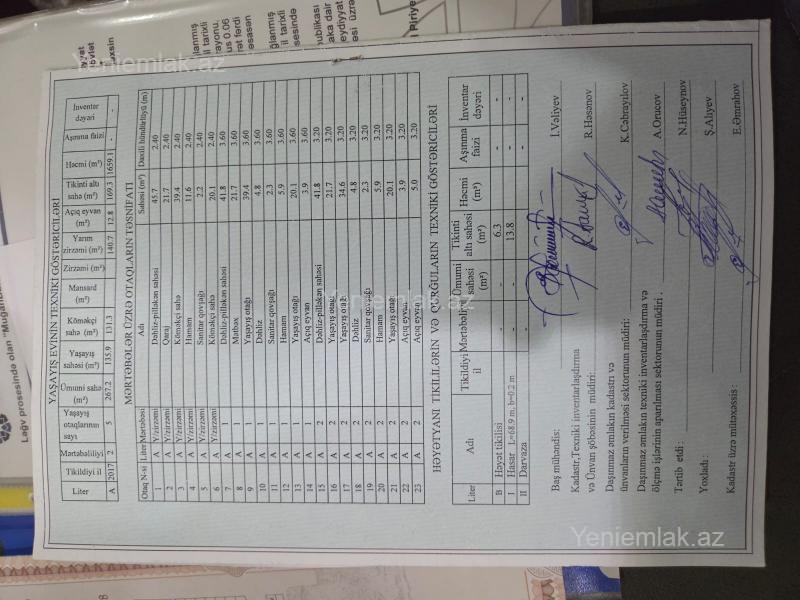 YAŞAYIŞ EVİNİN TEXNİKİ GÖSTƏRİCİLƏRİ
Liter Tikildiyi il Mərtəbəliliyi Yaşayış otaqlarının sayı Ümumi sahə (m²) Yaşayış sahəsi (m²) Köməkçi sahə (m²) Mansard Zirzəmi (m²) Yarım zirzəmi (m²) Açıq eyvan (m²) Tikinti altı sahə (m²) Həcmi (m³) Aşınma faizi İnventar dəyəri
A 2017 2 5 267.2 135.9 131.3 - - 140.7 12.8 169.3 1659.1 - -
MƏRTƏBƏLƏR ÜZRƏ OTAQLARIN TƏSNİFATI
Otaq N-si Liter Mərtəbəsi Adı Sahəsi (m²) Daxili hündürlüyü (m)
1 A Y/zirzəmi Dəhliz-pilləkən sahəsi 45.7 2.40
2 A Y/zirzəmi Qaraj 21.7 2.40
3 A Y/zirzəmi Köməkçi sahə 39.4 2.40
4 A Y/zirzəmi Hamam 11.6 2.40
5 A Y/zirzəmi Sanitar qovşağı 2.2 2.40
6 A Y/zirzəmi Köməkçi sahə 20.1 2.40
7 A 1 Dəhliz-pilləkən sahəsi 41.8 3.60
8 A 1 Mətbəx 21.7 3.60
9 A 1 Yaşayış otağı 39.4 3.60
10 A 1 Dəhliz 4.8 3.60
11 A 1 Sanitar qovşağı 2.3 3.60
12 A 1 Hamam 5.9 3.60
13 A 1 Yaşayış otağı 20.1 3.60
14 A 1 Açıq eyvan 3.9 3.60
15 A 2 Dəhliz-pilləkən sahəsi 41.8 3.20
16 A 2 Yaşayış otağı 21.7 3.20
17 A 2 Yaşayış otağı 34.6 3.20
18 A 2 Dəhliz 4.8 3.20
19 A 2 Sanitar qovşağı 2.3 3.20
20 A 2 Hamam 5.9 3.20
21 A 2 Yaşayış otağı 20.1 3.20
22 A 2 Açıq eyvan 3.9 3.20
23 A 2 Açıq eyvan 5.0 3.20
HƏYƏTYANI TİKİLİLƏRİN VƏ QURĞULARIN TEXNİKİ GÖSTƏRİCİLƏRİ
Liter Adı Tikildiyi il Mərtəbəliyi Ümumi sahəsi (m²) Tikinti altı sahəsi (m²) Həcmi (m³) Aşınma faizi İnventar dəyəri
B Həyət tikilisi 6.3 - - -
I Hasar L=68.9 m, h=0.2 m 13.8 - - -
II Darvaza - - -
Baş mühəndis: İ.Vəliyev
Kadastr,Texniki inventarlaşdırma
və Ünvan şöbəsinin müdiri: R.Həsənov
Daşınmaz əmlakın kadastrı və
ünvanların verilməsi sektorunun müdiri: K.Cəbrayılov
Daşınmaz əmlakın texniki inventarlaşdırma və
ölçmə işlərinin aparılması sektorunun müdiri . A.Orucov
Tərtib etdi : N.Hüseynov
Yoxladı : Ş.Alıyev
Kadastr üzrə mütəxəssis : E.Əmrahov
Ləğv prosesində olan
Yeniemlak.az
Yeniemlak.az
Yeniemlak.az